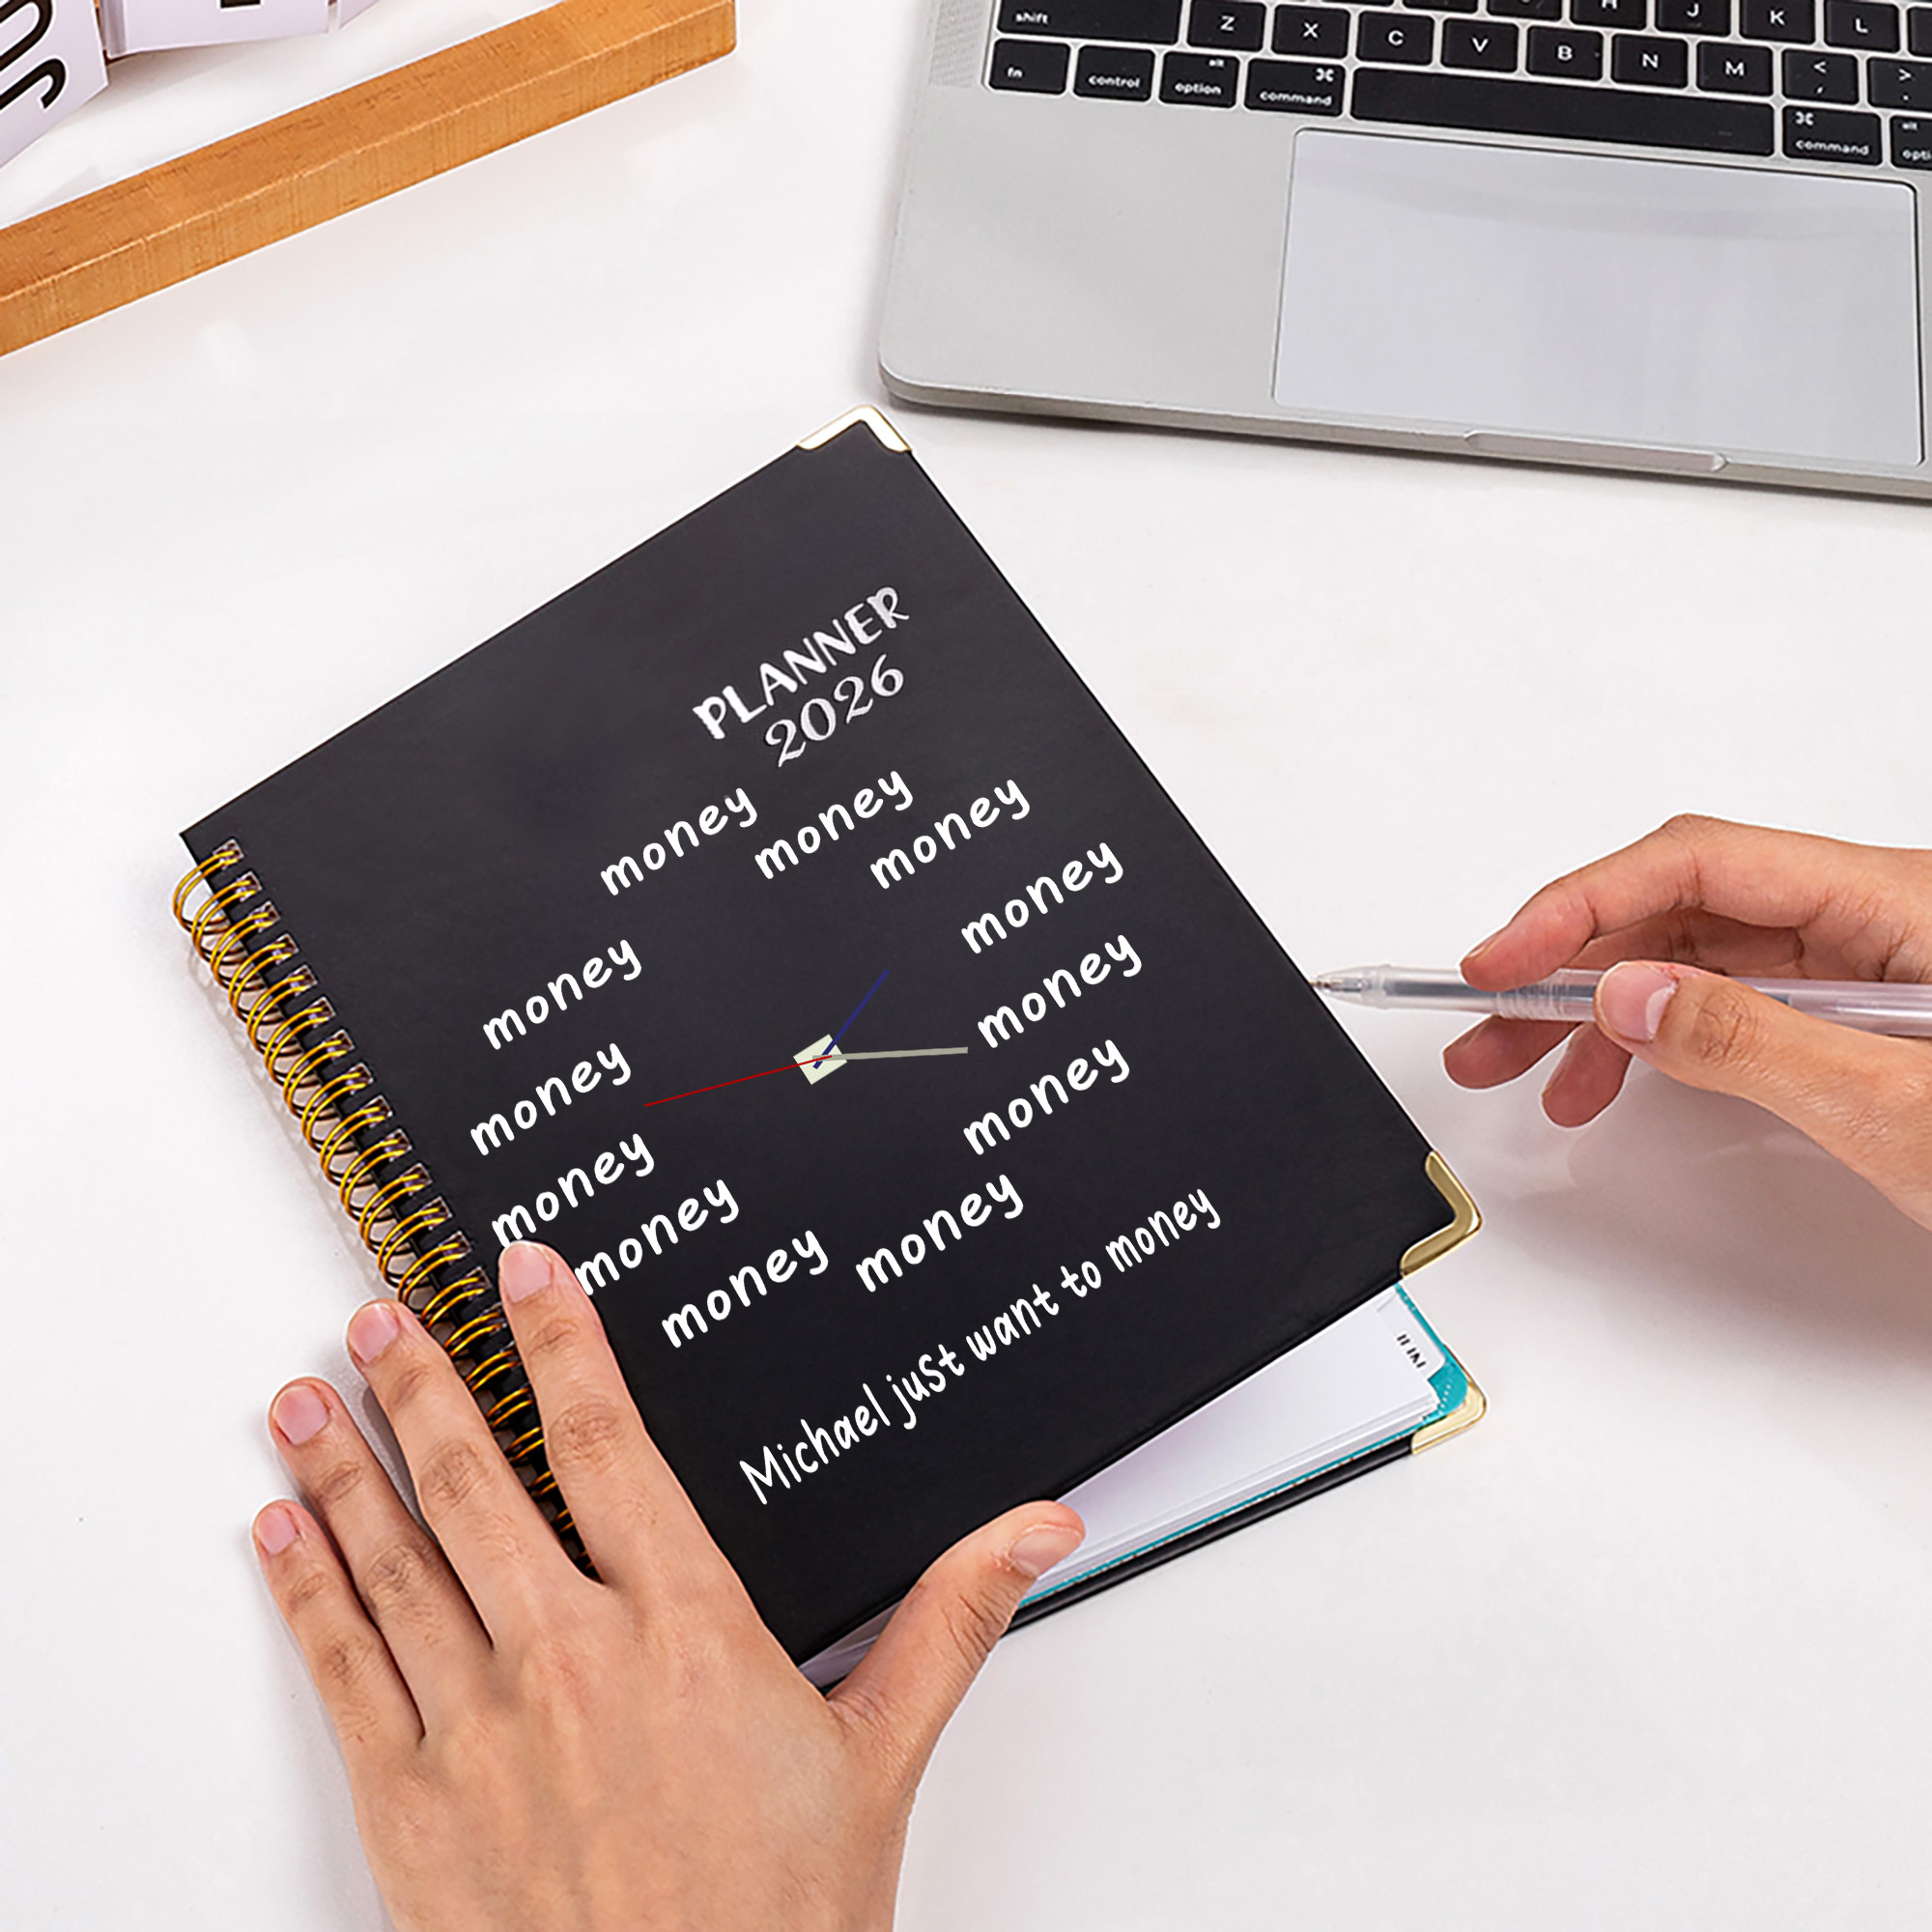 shift Z X C V B N M < ,
fn control alt option ⌘ command ⌘ command alt
H J K L
PLANNER
2026
money
money
money
money
money
money
money
money
money
money
money
money
Michael just want to money